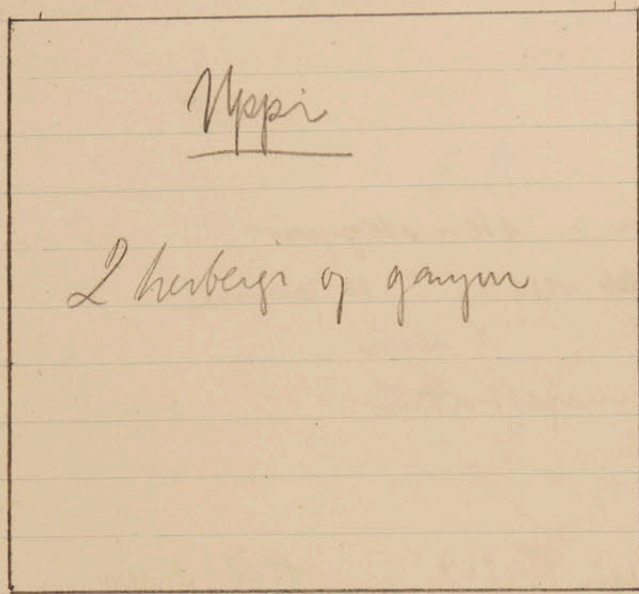 Uppi
2 herbergi og gangur